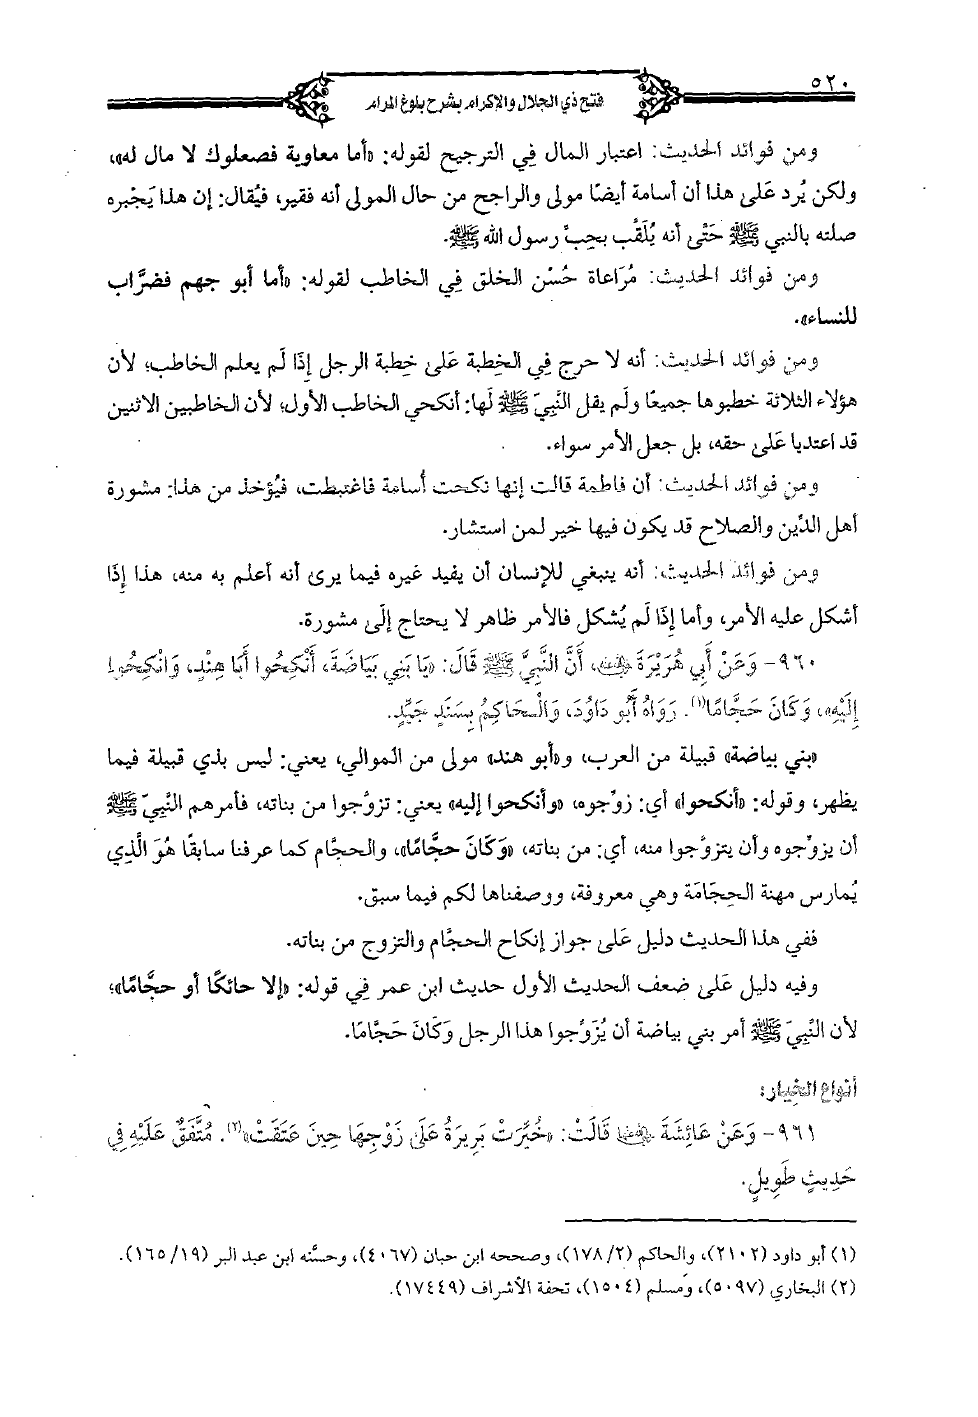 ٥٢٠
فتح ذي الجلال والإكرام بشرح بلوغ المرام
ومن فوائد الحديث: اعتبار المال فِي الترجيح لقوله: «أما معاوية فصعلوك لا مال له»،
ولكن يُرد عَلىٰ هذا أن أسامة أيضًا مولى والراجح من حال المولى أنه فقير، فيُقال: إن هذا يَجْبره
صلته بالنبي ﷺ حَتَّىٰ أنه يُلَقَّب بحِبِّ رسول الله ﷺ.
ومن فوائد الحديث: مُرَاعاة حُسْن الخلق فِي الخاطب لقوله: «أما أبو جهم فضرَّاب
للنساء».
ومن فوائد الحديث: أنه لا حرج فِي الخِطبة عَلىٰ خِطبة الرجل إِذَا لَم يعلم الخاطب؛ لأن
هؤلاء الثلاثة خطبوها جميعًا ولَم يقل النَّبِيّ ﷺ لَها: أنكحي الخاطب الأول؛ لأن الخاطبين الاثنين
قد اعتديا عَلىٰ حقه، بل جعل الأمر سواء.
ومن فوائد الحديث: أن فاطمة قالت إنها نكحت أُسامة فاغتبطت، فيُؤخذ من هذا: مشورة
أهل الدِّين والصلاح قد يكون فيها خير لمن استشار.
ومن فوائد الحديث: أنه ينبغي للإنسان أن يفيد غيره فيما يرى أنه أعلم به منه، هذا إِذَا
أشكل عليه الأمر، وأما إِذَا لَم يُشكل فالأمر ظاهر لا يحتاج إلَىٰ مشورة.
٩٦٠- وَعَنْ أَبِي هُرَيْرَةَ ﵁، أَنَّ النَّبِيَّ ﷺ قَالَ: «يَا بَنِي بَيَاضَةَ، أَنْكِحُوا أَبَا هِنْدٍ، وَانْكِحُوا
إِلَيْهِ»، وَكَانَ حَجَّامًا(١). رَوَاهُ أَبُو دَاوُدَ، وَالْحَاكِمُ بِسَنَدٍ جَيِّدٍ.
«بني بياضة» قبيلة من العرب، و«أبو هند» مولى من الموالي، يعني: ليس بذي قبيلة فيما
يظهر، وقوله: «أنكحوا» أي: زوِّجوه، «وأنكحوا إليه» يعني: تزوَّجوا من بناته، فأمرهم النَّبِيّ ﷺ
أن يزوِّجوه وأن يتزوَّجوا منه، أي: من بناته، «وَكَانَ حجَّامًا»، والحجَّام كما عرفنا سابقًا هُوَ الَّذِي
يُمارس مهنة الحِجَامَة وهي معروفة، ووصفناها لكم فيما سبق.
ففي هذا الحديث دليل عَلىٰ جواز إنكاح الحجَّام والتزوج من بناته.
وفيه دليل عَلَىٰ ضعف الحديث الأول حديث ابن عمر فِي قوله: «إلا حائكًا أو حجَّامًا»؛
لأن النَّبِيّ ﷺ أمر بني بياضة أن يُزَوِّجوا هذا الرجل وَكَانَ حَجَّامًا.
أنواع الخيار:
٩٦١- وَعَنْ عَائِشَةَ ﵂ قَالَتْ: «خُيِّرَتْ بَرِيرَةُ عَلَى زَوْجِهَا حِينَ عَتَقَتْ»(٢). مُتَّفَقٌ عَلَيْهِ فِي
حَدِيثٍ طَوِيلٍ.
(١) أبو داود (٢١٠٢)، والحاكم (١٧٨/٢)، وصححه ابن حبان (٤٠٦٧)، وحسَّنه ابن عبد البر (١٦٥/١٩).
(٢) البخاري (٥٠٩٧)، ومسلم (١٥٠٤)، تحفة الأشراف (١٧٤٤٩).